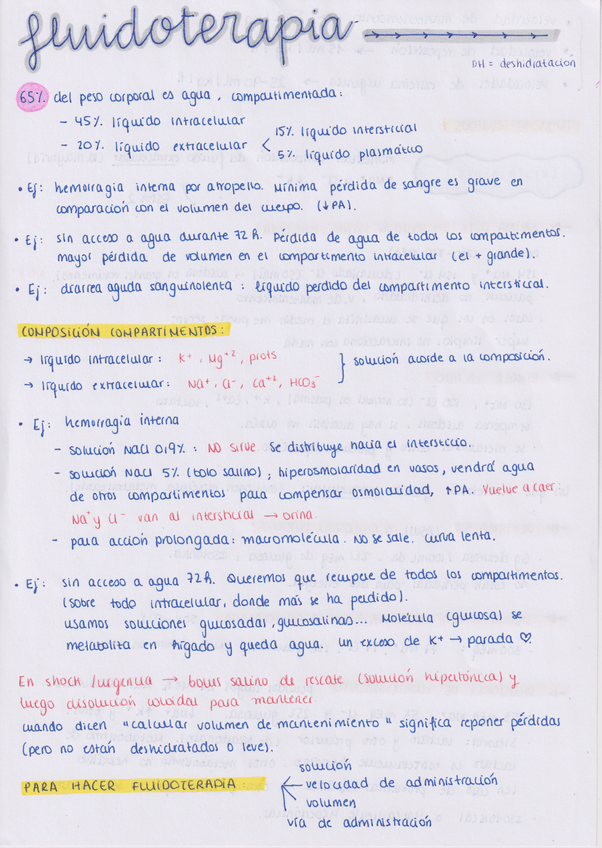 fluidoterapia
DH = deshidratación
65% del peso corporal es agua, compartimentada:
- 45% líquido intracelular
- 20% líquido extracelular < 15% líquido intersticial
5% líquido plasmático
• Ej: hemorragia interna por atropello. Mínima pérdida de sangre es grave en
comparación con el volumen del cuerpo. (↓PA).
• Ej: sin acceso a agua durante 72h. Pérdida de agua de todos los compartimentos.
mayor pérdida de volumen en el compartimento intracelular (el + grande).
• Ej: diarrea aguda sanguinolenta: líquido perdido del compartimento intersticial.
COMPOSICIÓN COMPARTIMENTOS:
→ líquido intracelular: K⁺, Mg⁺², prots
→ líquido extracelular: Na⁺, Cl⁻, Ca⁺², HCO₃⁻
} solución acorde a la composición.
• Ej: hemorragia interna
- solución NaCl 0,9%: NO SIRVE. Se distribuye hacia el intersticio.
- solución NaCl 5% (bolo salino), hiperosmolaridad en vasos, vendrá agua
de otros compartimentos para compensar osmolaridad, ↑PA. Vuelve a caer:
Na⁺ y Cl⁻ van al intersticial → orina.
- para acción prolongada: macromolécula. No se sale. curva lenta.
• Ej: sin acceso a agua 72h. Queremos que recupere de todos los compartimentos.
(sobre todo intracelular, donde más se ha perdido).
usamos soluciones glucosadas, glucosalinas... Molécula (glucosa) se
metabolita en hígado y queda agua. un exceso de K⁺ → parada ♡.
En shock/urgencia → bolus salino de rescate (solución hipertónica) y
luego disolución coloidal para mantener.
cuando dicen "calcular volumen de mantenimiento" significa reponer pérdidas
(pero no están deshidratados o leve).
PARA HACER FLUIDOTERAPIA
solución
velocidad de administración
volumen
vía de administración